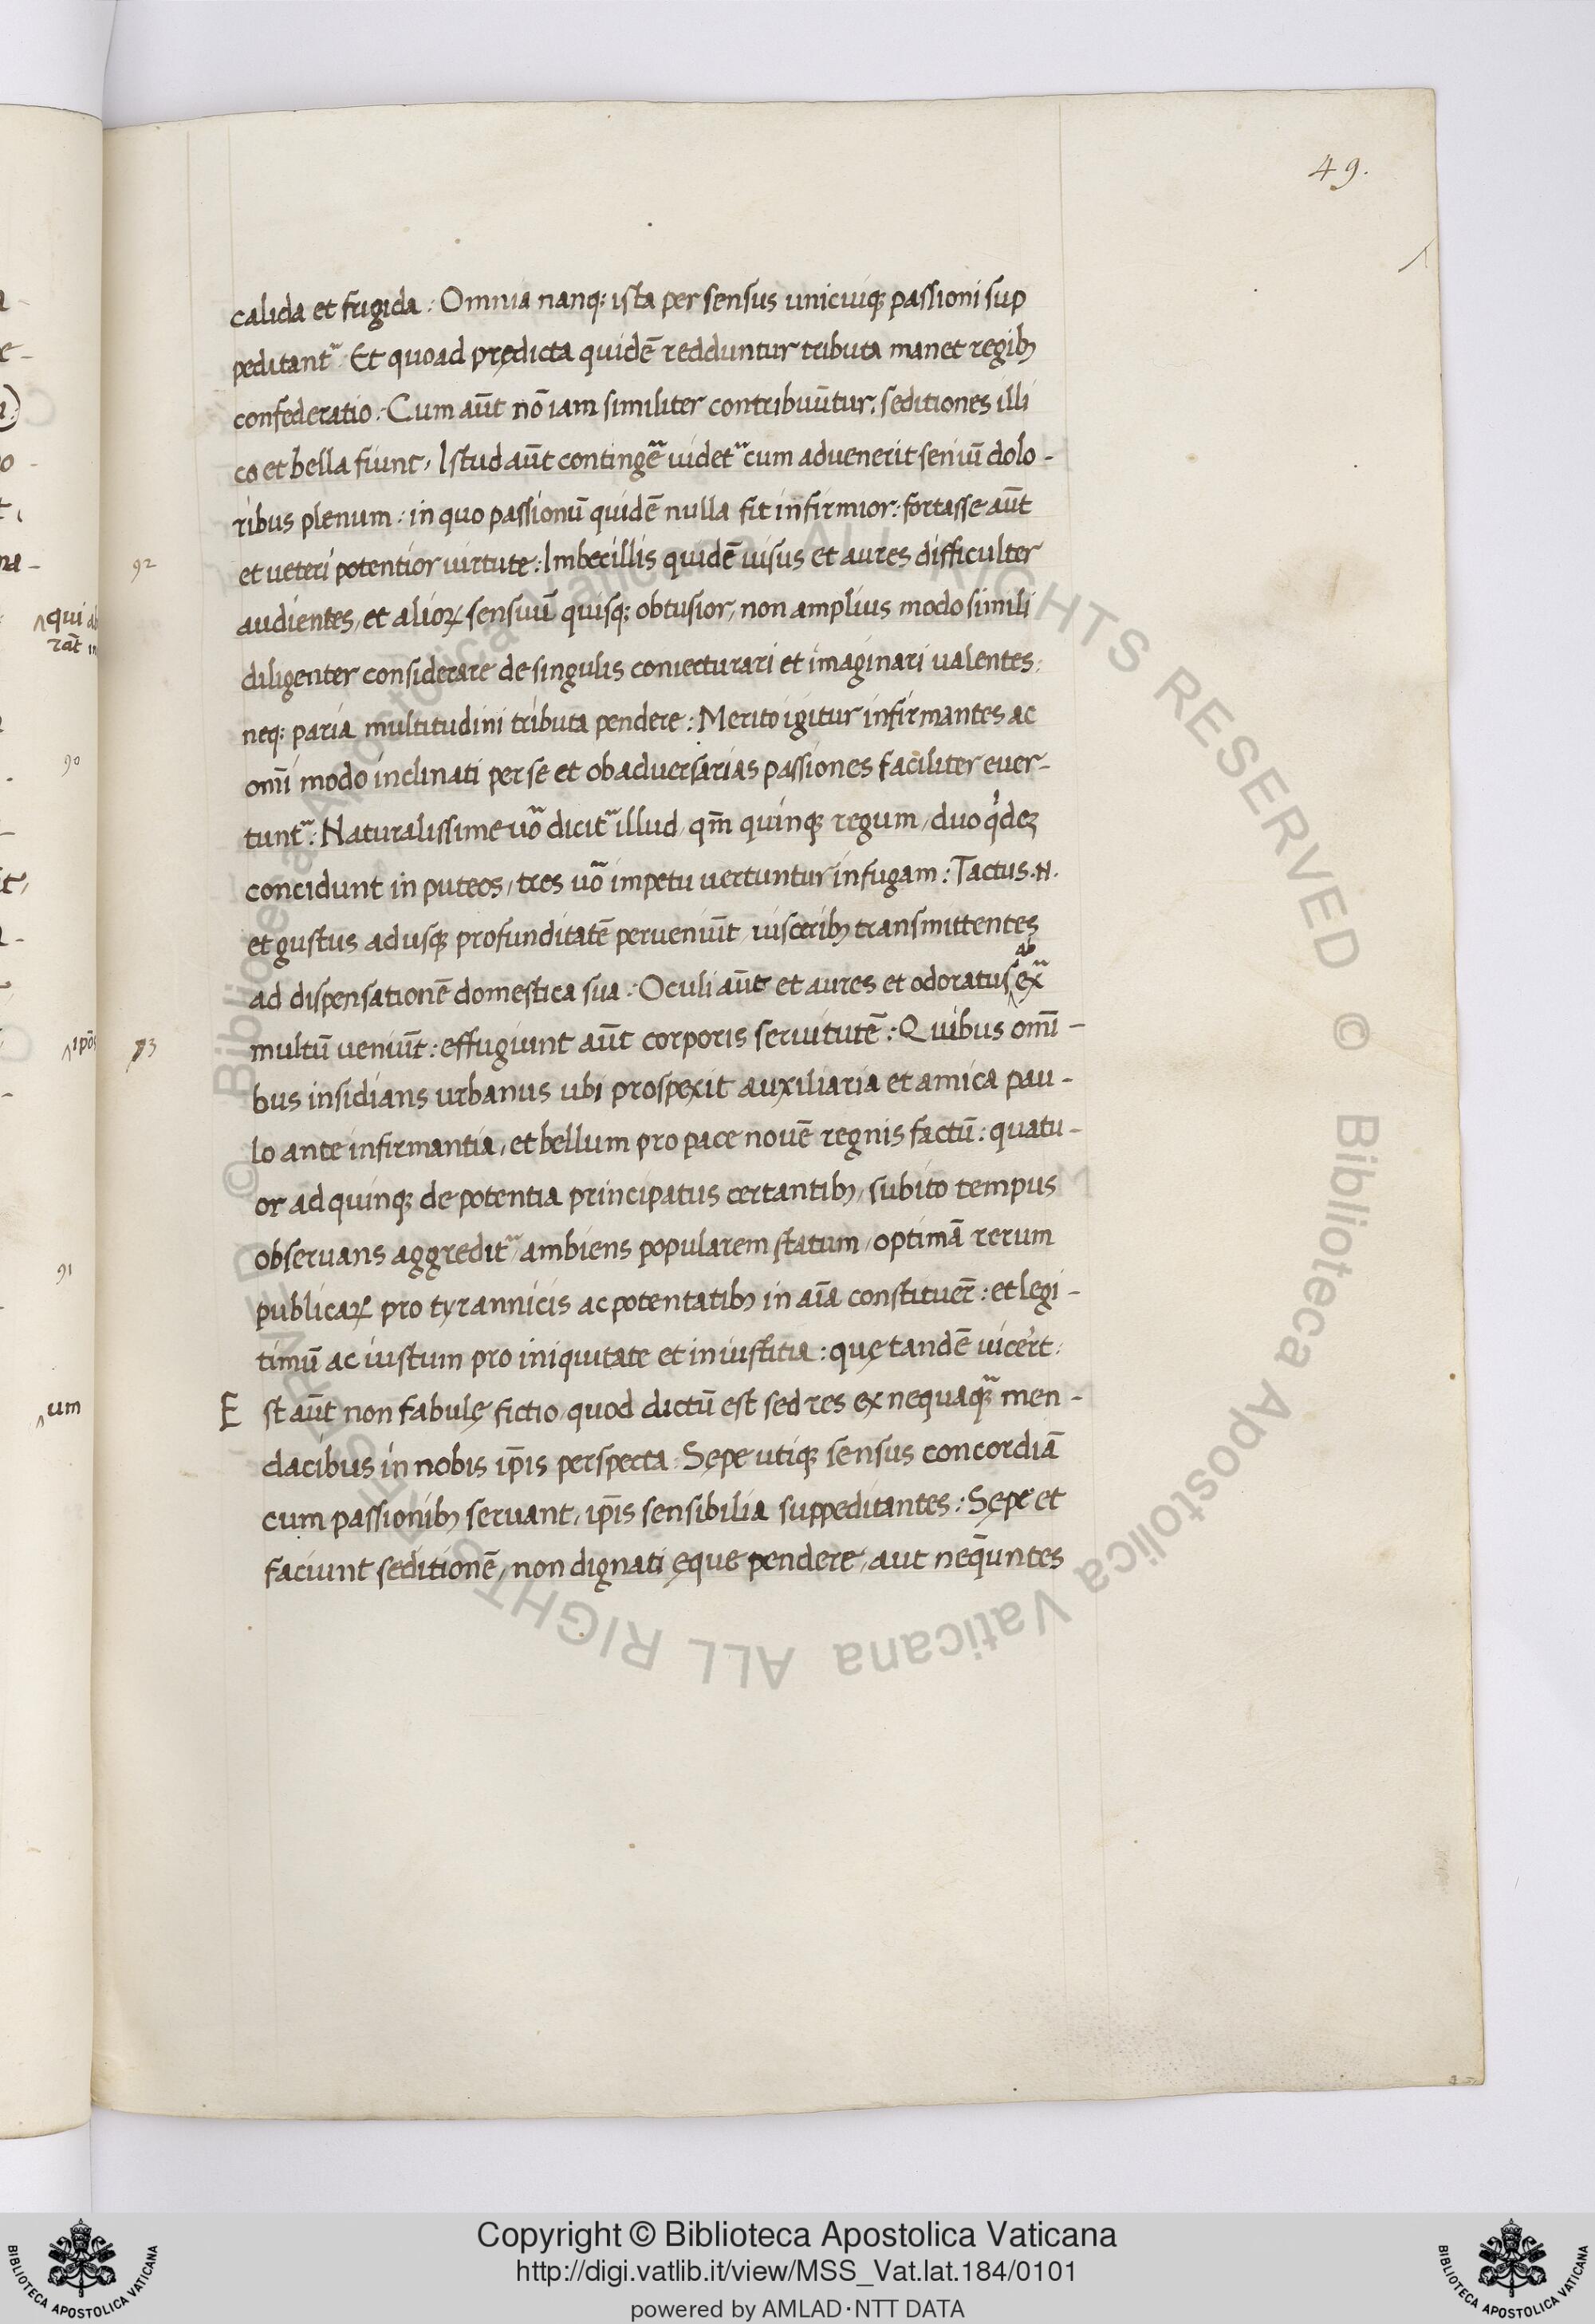 49.
calida et frigida : Omnia nanq; ista per sensus unicuiq; passioni sup
peditant᷑. Et quoad prędicta quidē redduntur tributa manet regib;
confederatio : Cum aūt nō iam similiter contribuūtur, seditiones illi
co et bella fiunt, Istud aūt contingē᷑ uidet᷑ cum advenerit seniū dolo-
ribus plenum : in quo passionū quidē nulla fit infirmior : fortasse aūt
et ueteri potentior uirtute : Imbecillis quidē uisus et aures difficulter
92
audientes, et alioꝝ sensuū quisq; obtusior, non amplius modo simili
diligenter considerare de singulis coniecturari et imaginari valentes :
neq; paria multitudini tributa pendere : Merito igitur infirmantes ac
omī modo inclinati per se et ob adversarias passiones faciliter ever-
tunt᷑ : Naturalissime uō dicit᷑ illud, qm̄ quinq; regum, duo qͥdeꝫ
concidunt in puteos, tres uō impetu vertuntur in fugam : Tactus .N.
et gustus adusq; profunditatē perveniūt, uiscerib; transmittentes
ab
ad dispensationē domestica sua : Oculi aūt et aures et odoratus ex᷑
multū ueniūt : effugiunt aūt corporis seruitutē : Quibus omī-
93
bus insidians urbanus ubi prospexit auxiliaria et amica pau-
lo ante infirmantia, et bellum pro pace novē regnis factū : quatu-
or ad quinq; de potentia principatus certantib;, subito tempus
obseruans aggredit᷑, ambiens popularem statum, optimā rerum
publicaꝝ pro tyrannicis ac potentatib; in aīa constituer̄ : et legi-
timū ac iustum pro iniquitate et iniustitia : quę tandē uicer̄t :
E st aūt non fabulę fictio quod dictū est sed res ex nequaq᷑ men-
dacibus in nobis ip̄is perspecta : Sępe utiq; sensus concordiā
cum passionib; seruant, ip̄is sensibilia suppeditantes : Sępe et
faciunt seditionē, non dignati ęque pendere, aut neq̄untes
qui
90
91
um
© Biblioteca Apostolica Vaticana ALL RIGHTS RESERVED © Biblioteca Apostolica Vaticana ALL RIGHTS RESERVED
Copyright © Biblioteca Apostolica Vaticana
http://digi.vatlib.it/view/MSS_Vat.lat.184/0101
powered by AMLAD·NTT DATA
BIBLIOTECA APOSTOLICA VATICANA
BIBLIOTECA APOSTOLICA VATICANA